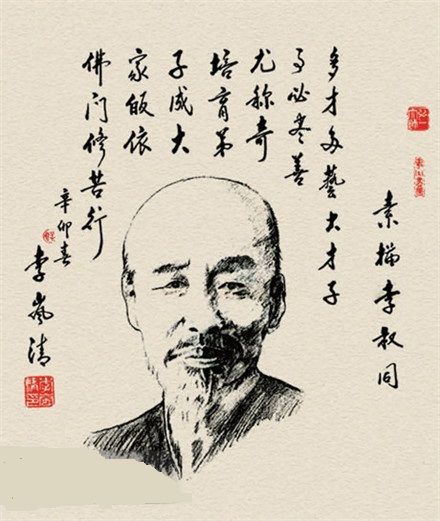 素描李叔同
多才多藝大才子
事必尽善
尤称奇
培育弟
子成大
家皈依
佛门修苦行
辛卯春
李岚清